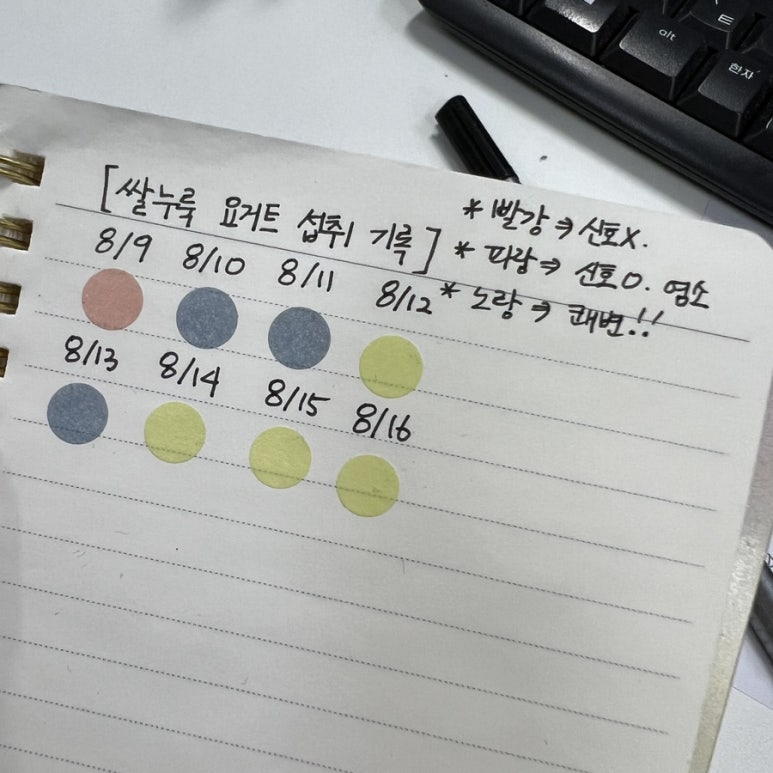 alt
E
한자
[쌀누룩 요거트 섭취 기록]
* 빨강 => 신호X.
* 파랑 => 신호O. 염소
* 노랑 => 쾌변!!
8/9 8/10 8/11 8/12
8/13 8/14 8/15 8/16